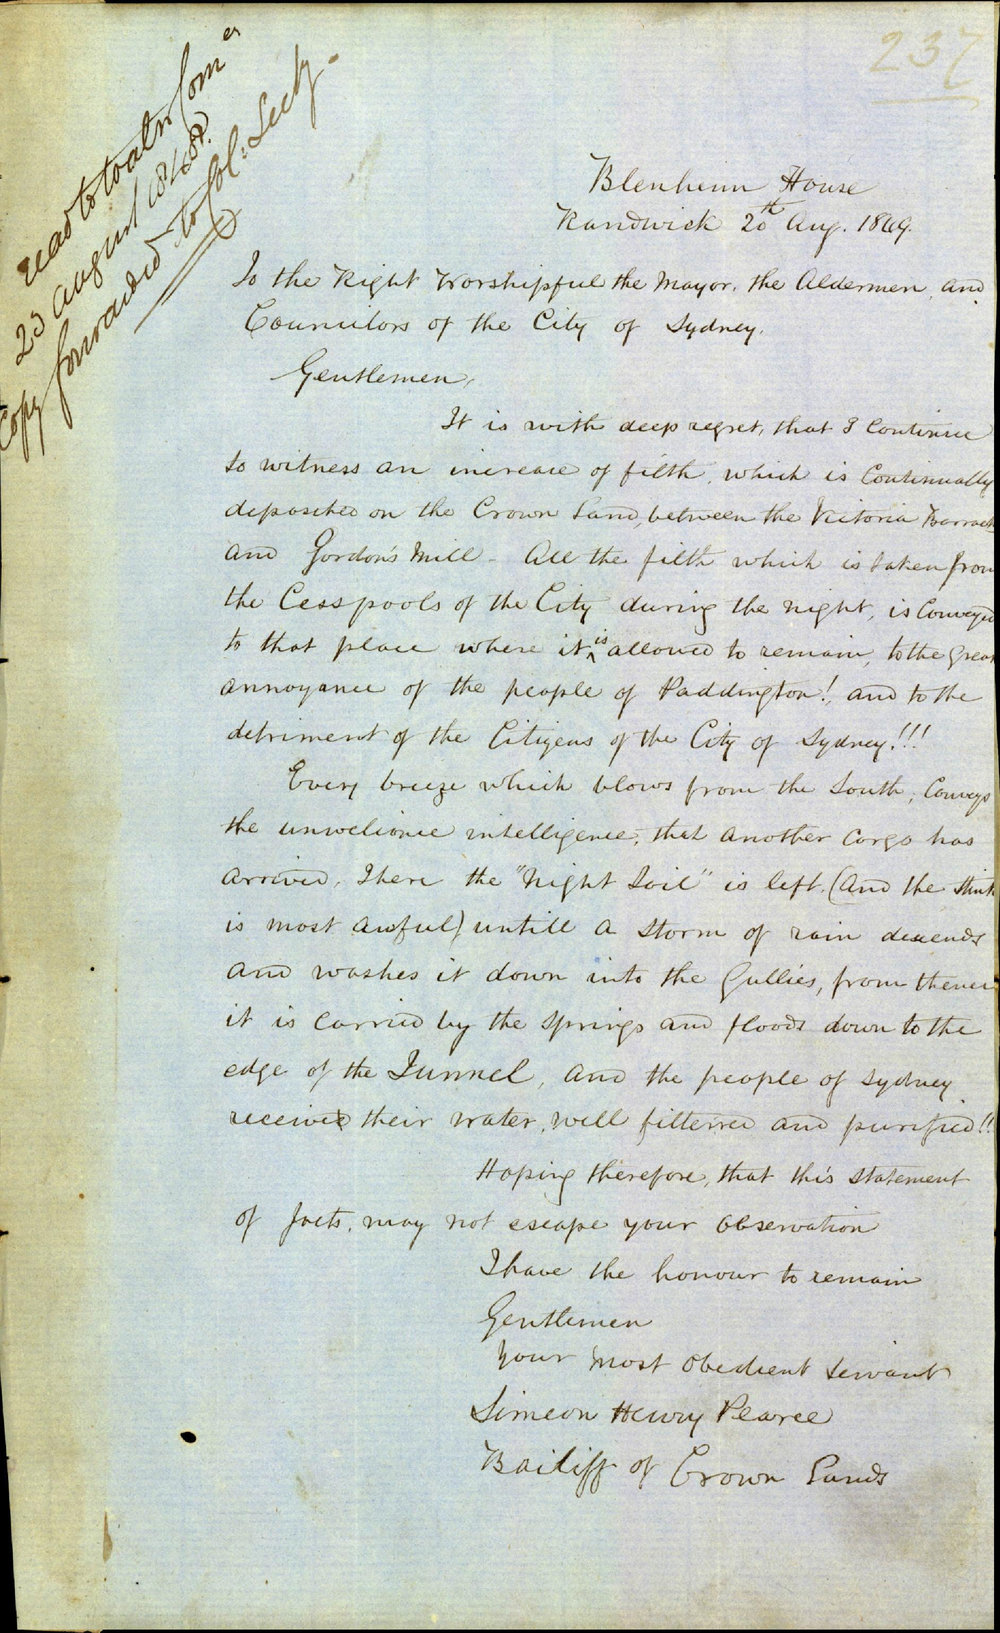 237
read to water Com^er
23 August 1848.
Copy forwarded to Col: Secty.
Blenheim House
Randwick 20th Aug. 1849.
To the Right Worshipful the Mayor, the Aldermen, and
Councillors of the City of Sydney.
Gentlemen,
It is with deep regret, that I Continue
to witness an increase of filth, which is Continually
deposited on the Crown Land, between the Victoria Barracks
and Gordon's Mill - All the filth which is taken from
the Cesspools of the City during the night, is Conveyed
to that place where it is allowed to remain, to the Great
annoyance of the people of Paddington!, and to the
detriment of the Citizens of the City of Sydney!!!
Every breeze which blows from the South, Conveys
the unwelcome intelligence, that another Cargo has
arrived. There the "Night Soil" is left. (And the stink
is most awful) untill a storm of rain descends
and washes it down into the Gullies, from thence
it is carried by the springs and floods down to the
edge of the Tunnel, and the people of Sydney
receive their water, well filterred and purified!!
Hoping therefore, that this statement
of facts, may not escape your observation
I have the honour to remain
Gentlemen
Your most Obedient Servant
Simeon Henry Pearce
Bailiff of Crown Lands